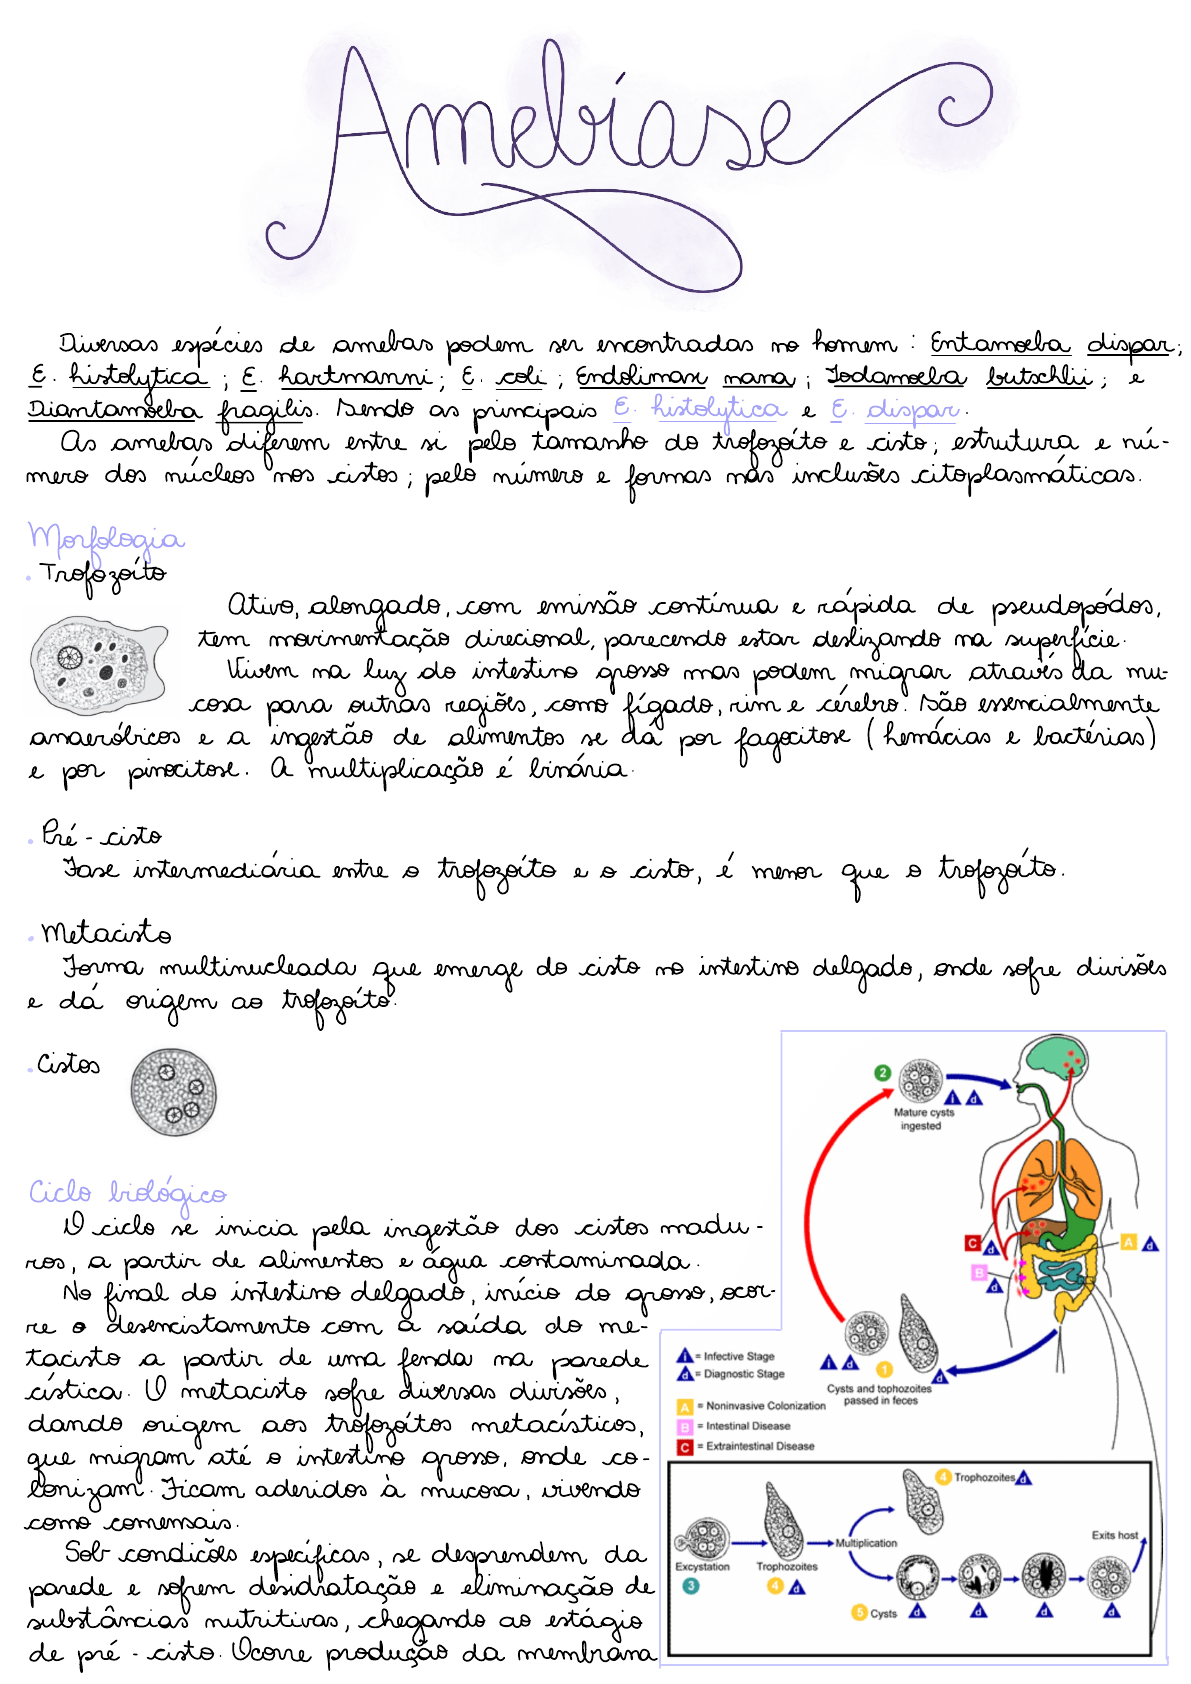 Amebíase
Diversas espécies de amebas podem ser encontradas no homem: Entamoeba dispar;
E. histolytica; E. hartmanni; E. coli; Endolimax nana; Iodamoeba butschlii; e
Diantamoeba fragilis. Sendo as principais E. histolytica e E. dispar.
As amebas diferem entre si pelo tamanho do trofozoíto e cisto; estrutura e nú-
mero dos núcleos nos cistos; pelo número e formas nas inclusões citoplasmáticas.
Morfologia
. Trofozoíto
Ativo, alongado, com emissão contínua e rápida de pseudopódos,
tem movimentação direcional, parecendo estar deslizando na superfície.
Vivem na luz do intestino grosso mas podem migrar através da mu-
cosa para outras regiões, como fígado, rim e cérebro. São essencialmente
anaeróbicos e a ingestão de alimentos se dá por fagocitose (hemácias e bactérias)
e por pinocitose. A multiplicação é binária.
. Pré-cisto
Fase intermediária entre o trofozoíto e o cisto, é menor que o trofozoíto.
. Metacisto
Forma multinucleada que emerge do cisto no intestino delgado, onde sofre divisões
e dá origem ao trofozoíto.
. Cistos
Ciclo biológico
O ciclo se inicia pela ingestão dos cistos madu-
ros, a partir de alimentos e água contaminada.
No final do intestino delgado, início do grosso, ocor-
re o desencistamento com a saída do me-
tacisto a partir de uma fenda na parede
cística. O metacisto sofre diversas divisões,
dando origem aos trofozoítos metacísticos,
que migram até o intestino grosso, onde co-
lonizam. Ficam aderidos à mucosa, vivendo
como comensais.
Sob condicões específicas, se desprendem da
parede e sofrem desidratação e eliminação de
substâncias nutritivas, chegando ao estágio
de pré-cisto. Ocorre produção da membrana
2
i d
Mature cysts
ingested
C d
B d
A d
i d
1
d
Cysts and tophozoites
passed in feces
i = Infective Stage
d = Diagnostic Stage
A = Noninvasive Colonization
B = Intestinal Disease
C = Extraintestinal Disease
4 Trophozoites d
Multiplication
Exits host
Excystation
3
Trophozoites
4 d
5 Cysts d
d
d
d